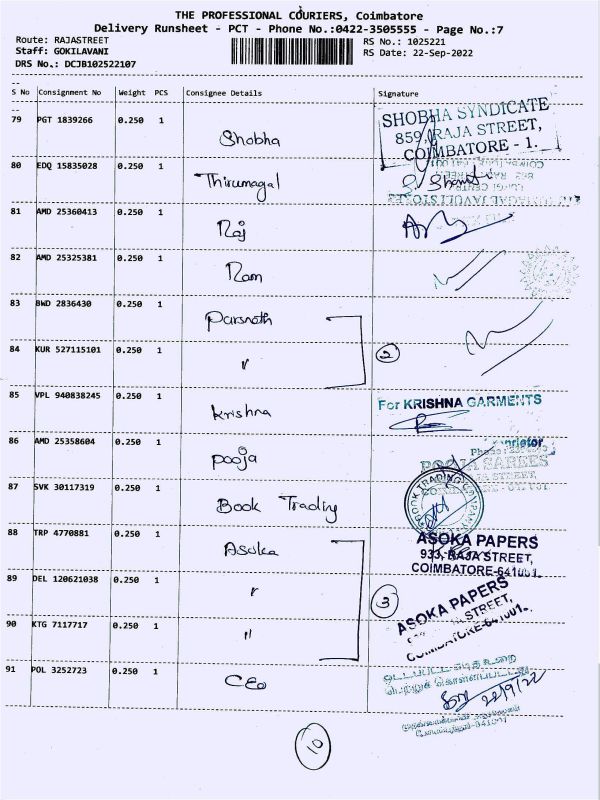 THE PROFESSIONAL COURIERS, Coimbatore
Delivery Runsheet - PCT - Phone No.:0422-3505555 - Page No.:7
Route: RAJASTREET
RS No.: 1025221
Staff: GOKILAVANI
RS Date: 22-Sep-2022
DRS No.: DCJB102522107
S No Consignment No Weight PCS Consignee Details Signature
79 PGT 1839266 0.250 1 Shobha
SHOBHA SYNDICATE
859, RAJA STREET,
COIMBATORE - 1.
80 EDQ 15835028 0.250 1 Thirumagal
81 AMD 25360413 0.250 1 Raj
82 AMD 25325381 0.250 1 Ram
83 BWD 2836430 0.250 1 Parsnath
84 KUR 527115101 0.250 1 〃 2
85 VPL 940838245 0.250 1 Krishna
For KRISHNA GARMENTS
86 AMD 25358604 0.250 1 pooja
POOJA SAREES
87 SVK 30117319 0.250 1 Book Trading
BOOK TRADING COMPANY
88 TRP 4770881 0.250 1 Asoka
ASOKA PAPERS
933, RAJA STREET,
COIMBATORE-641001.
89 DEL 120621038 0.250 1 〃 3
ASOKA PAPERS
STREET,
90 KTG 7117717 0.250 1 〃
91 POL 3252723 0.250 1 CEO
22/9/22
10